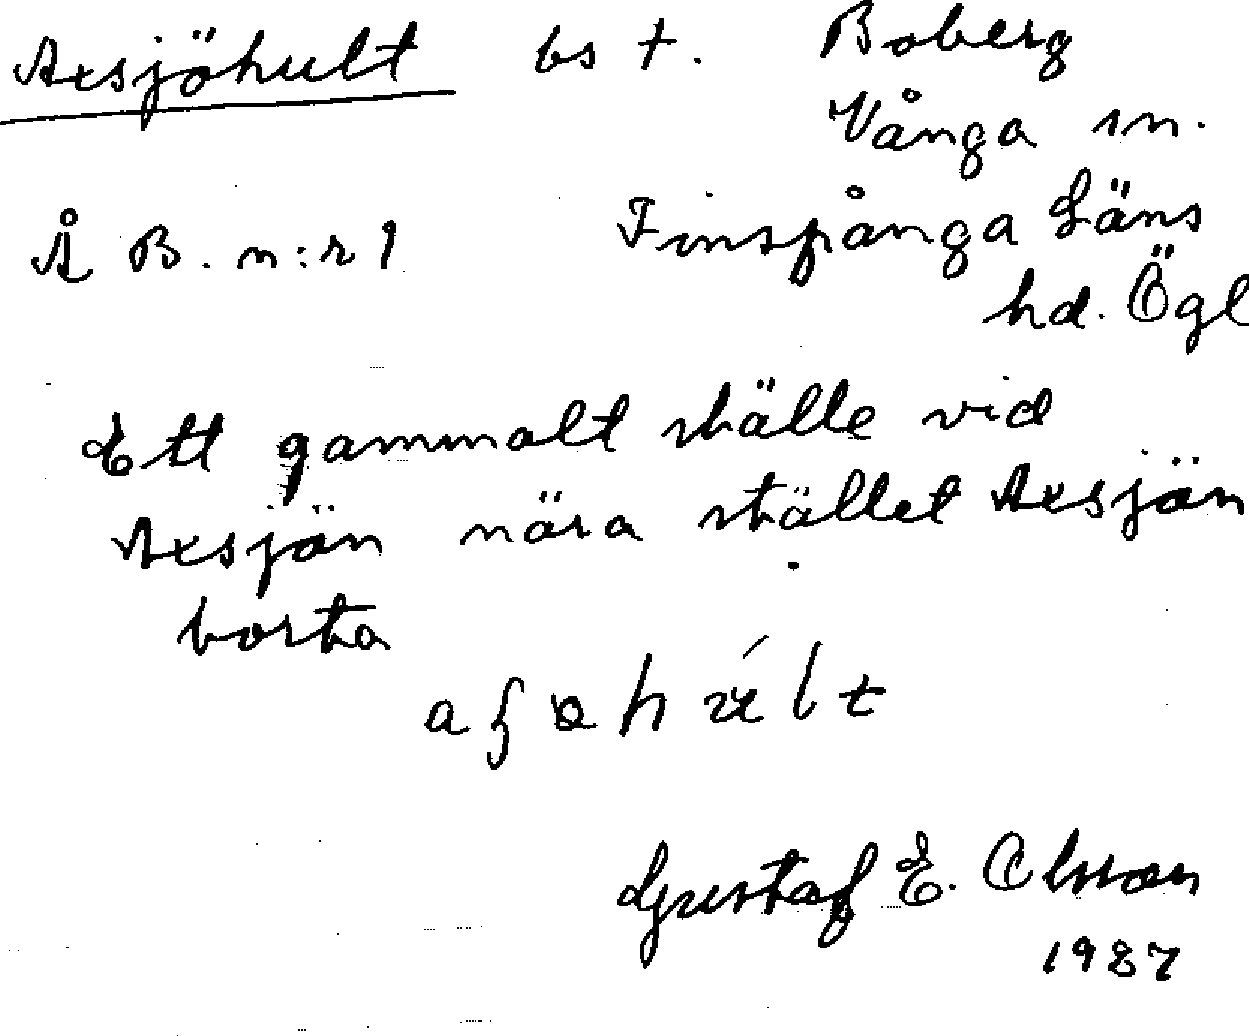 Axsjöhult bs †. Boberg
Vånga sn.
Å B. n:r 1 Finspånga Läns
hd. Ögl
Ett gammalt ställe vid
Axsjön nära stället Axsjön
borta
Gustaf E. Olsson
1987